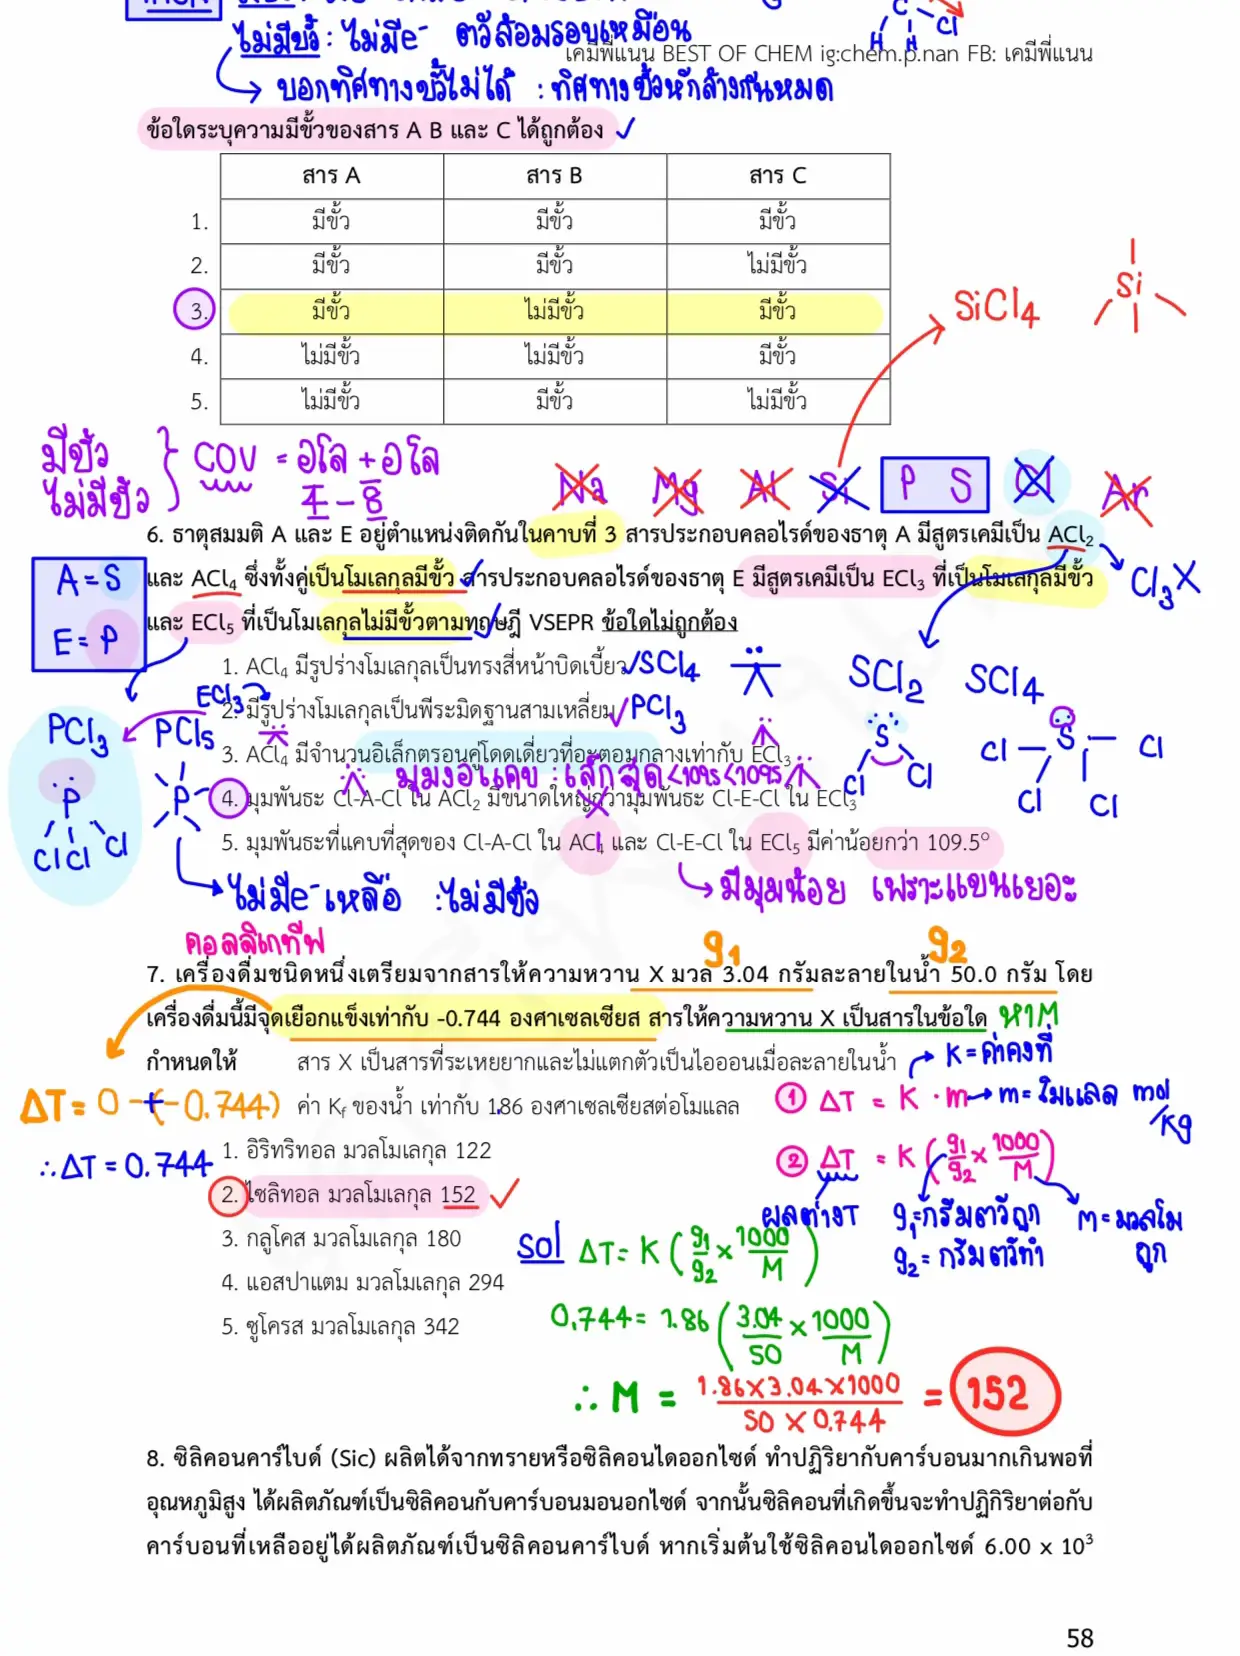 ไม่มีขั้ว : ไม่มีe⁻ ตัวล้อมรอบเหมือน
C Cl
H H
เคมีพี่แนน BEST OF CHEM ig:chem.p.nan FB: เคมีพี่แนน
→ บอกทิศทางขั้วไม่ได้ : ทิศทางขั้วหักล้างกันหมด
ข้อใดระบุความมีขั้วของสาร A B และ C ได้ถูกต้อง ✓
สาร A สาร B สาร C
1. มีขั้ว มีขั้ว มีขั้ว
2. มีขั้ว มีขั้ว ไม่มีขั้ว
3. มีขั้ว ไม่มีขั้ว มีขั้ว
4. ไม่มีขั้ว ไม่มีขั้ว มีขั้ว
5. ไม่มีขั้ว มีขั้ว ไม่มีขั้ว
SiCl4 Si
มีขั้ว
ไม่มีขั้ว
COV = อโล + อโล
4 - 8
Na Mg Al Si P S Cl Ar
6. ธาตุสมมติ A และ E อยู่ตำแหน่งติดกันในคาบที่ 3 สารประกอบคลอไรด์ของธาตุ A มีสูตรเคมีเป็น ACl₂
และ ACl₄ ซึ่งทั้งคู่เป็นโมเลกุลมีขั้ว สารประกอบคลอไรด์ของธาตุ E มีสูตรเคมีเป็น ECl₃ ที่เป็นโมเลกุลมีขั้ว
และ ECl₅ ที่เป็นโมเลกุลไม่มีขั้วตามทฤษฎี VSEPR ข้อใดไม่ถูกต้อง
A = S
E = P
Cl3X
1. ACl₄ มีรูปร่างโมเลกุลเป็นทรงสี่หน้าบิดเบี้ยว ✓SCl4
ECl3
2. มีรูปร่างโมเลกุลเป็นพีระมิดฐานสามเหลี่ยม ✓PCl3
3. ACl₄ มีจำนวนอิเล็กตรอนคู่โดดเดี่ยวที่อะตอมกลางเท่ากับ ECl₃
มุมงอแคบ : เล็กสุด <109.5 <109.5
4. มุมพันธะ Cl-A-Cl ใน ACl₂ มีขนาดใหญ่กว่ามุมพันธะ Cl-E-Cl ใน ECl₃
5. มุมพันธะที่แคบที่สุดของ Cl-A-Cl ใน ACl₄ และ Cl-E-Cl ใน ECl₅ มีค่าน้อยกว่า 109.5°
SCl2 SCl4
S
Cl Cl
Cl S Cl
Cl Cl
PCl3 PCl5
P P
Cl Cl Cl
→ ไม่มีe⁻ เหลือ : ไม่มีขั้ว
→ มีมุมน้อย เพราะแขนเยอะ
คอลลิเกทีฟ
g1 g2
7. เครื่องดื่มชนิดหนึ่งเตรียมจากสารให้ความหวาน X มวล 3.04 กรัมละลายในน้ำ 50.0 กรัม โดย
เครื่องดื่มนี้มีจุดเยือกแข็งเท่ากับ -0.744 องศาเซลเซียส สารให้ความหวาน X เป็นสารในข้อใด หาM
กำหนดให้ สาร X เป็นสารที่ระเหยยากและไม่แตกตัวเป็นไอออนเมื่อละลายในน้ำ
ค่า K_f ของน้ำ เท่ากับ 1.86 องศาเซลเซียสต่อโมแลล
1. อิริทริทอล มวลโมเลกุล 122
2. ไซลิทอล มวลโมเลกุล 152 ✓
3. กลูโคส มวลโมเลกุล 180
4. แอสปาแตม มวลโมเลกุล 294
5. ซูโครส มวลโมเลกุล 342
ΔT = 0 - (-0.744)
∴ ΔT = 0.744
→ K = ค่าคงที่
① ΔT = K · m → m = โมแลล mol/kg
② ΔT = K (g1/g2 × 1000/M)
ผลต่างT g1 = กรัมตัวถูก M = มวลโมถูก
g2 = กรัมตัวทำ
sol ΔT = K (g1/g2 × 1000/M)
0.744 = 1.86 (3.04/50 × 1000/M)
∴ M = 1.86 × 3.04 × 1000 / 50 × 0.744 = 152
8. ซิลิคอนคาร์ไบด์ (Sic) ผลิตได้จากทรายหรือซิลิคอนไดออกไซด์ ทำปฏิริยากับคาร์บอนมากเกินพอที่
อุณหภูมิสูง ได้ผลิตภัณฑ์เป็นซิลิคอนกับคาร์บอนมอนอกไซด์ จากนั้นซิลิคอนที่เกิดขึ้นจะทำปฏิกิริยาต่อกับ
คาร์บอนที่เหลืออยู่ได้ผลิตภัณฑ์เป็นซิลิคอนคาร์ไบด์ หากเริ่มต้นใช้ซิลิคอนไดออกไซด์ 6.00 x 10³
58